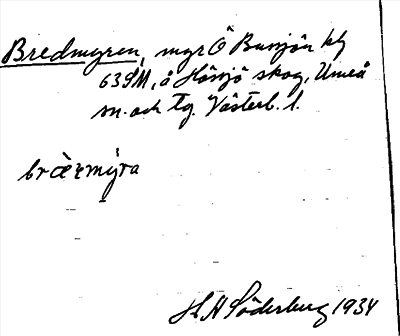 Bredmyren, myr Ö Bursjön kbl
63SM, å Hössjö skog, Umeå
sn. och tg. Västerb. l.
bræ̀rmýra
H A Söderberg 1934